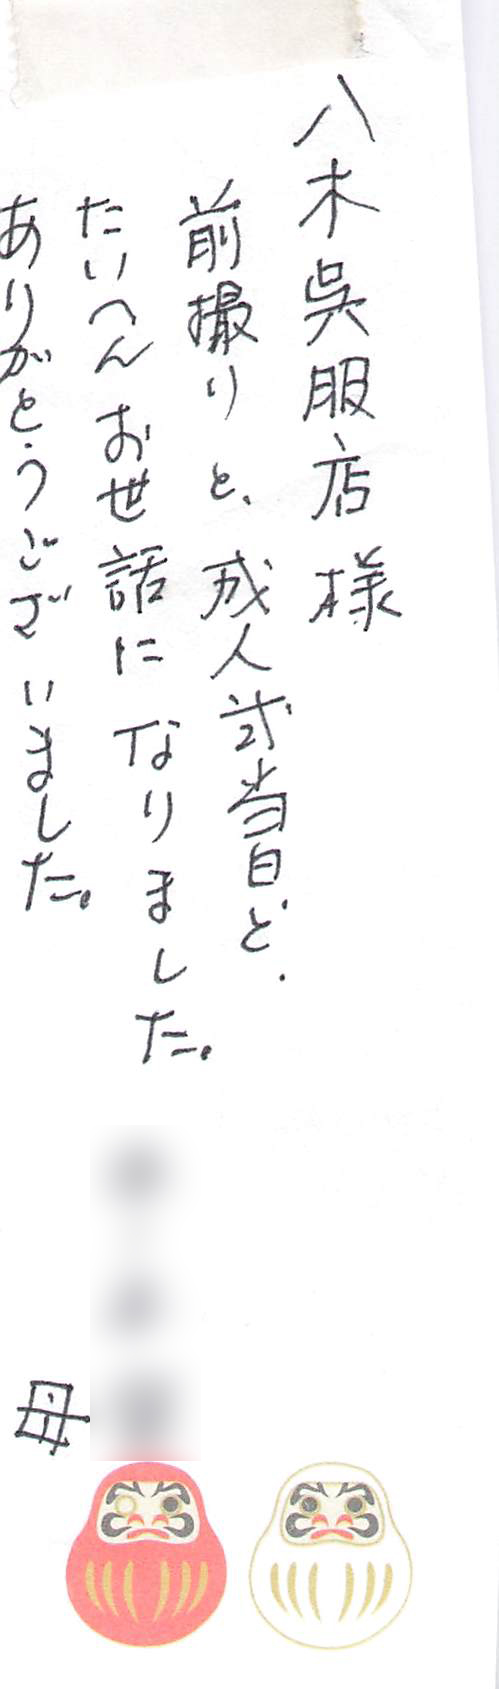 八木呉服店様
前撮りと、成人式当日と、
たいへんお世話になりました。
ありがとうございました。
母